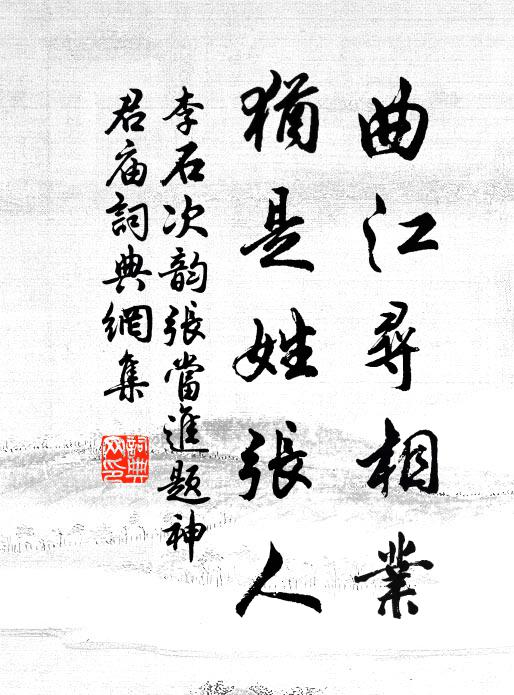 曲江尋相業
猶是姓張人
李石次韵張當進题神
君庙詞典網集
詞典
网印